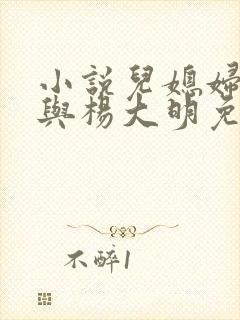 小說兒媳婦
與楊大明免
不醉1